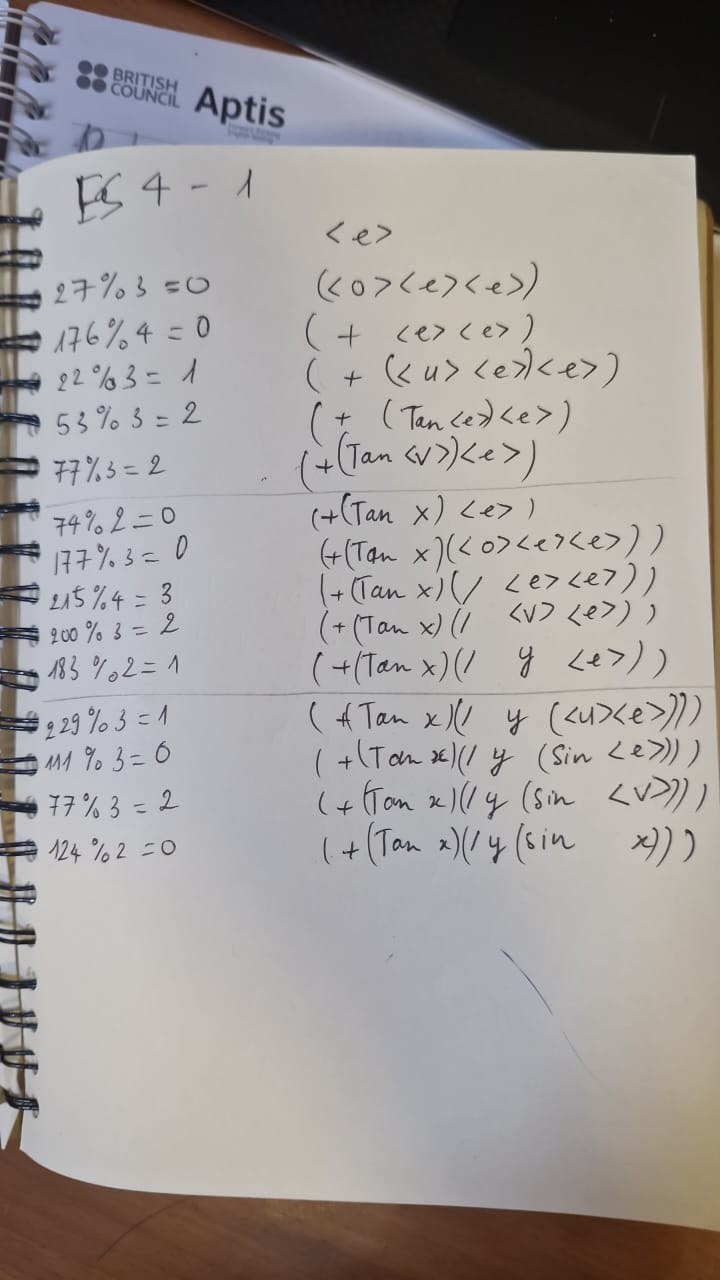 BRITISH
COUNCIL Aptis
ES 4 - 1
<e>
27%3 = 0 (<o><e><e>)
176%4 = 0 ( + <e><e>)
22%3 = 1 ( + (<u><e>)<e>)
53%3 = 2 ( + (Tan<e>)<e>)
77%3 = 2 (+(Tan <v>)<e>)
74%2 = 0 (+(Tan x) <e>)
177%3 = 0 (+(Tan x)(<o><e><e>))
215%4 = 3 (+(Tan x)(/ <e><e>))
200%3 = 2 (+(Tan x)(/ <v><e>))
183%2 = 1 (+(Tan x)(/ y <e>))
229%3 = 1 (+(Tan x)(/ y (<u><e>)))
111%3 = 0 (+(Tan x)(/ y (Sin <e>)))
77%3 = 2 (+(Tan x)(/ y (sin <v>)))
124%2 = 0 (+(Tan x)(/ y (sin x)))